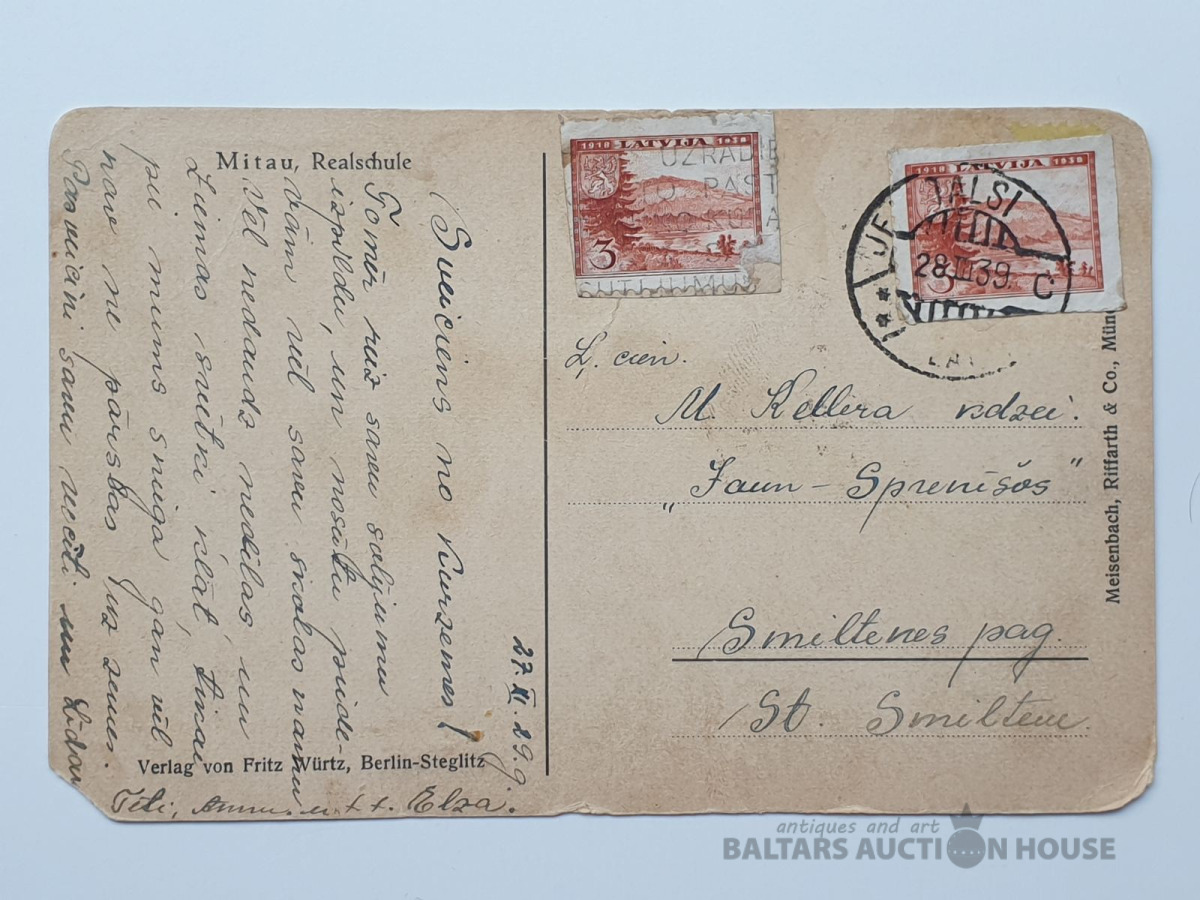 Mitau, Realschule
27. XI. 29. g.
Sveiciens no Kurzemes!
Tomēr reiz savu solījumu
izpildu, un nosūtu piede-
vām vēl savu skolas namu
Vēl nedaudz nedēļas un
Ziemas svētki klāt, tikai
pie mums sniega gan vēl
nav ne pārslas uz zemes.
Pasveicini savu un
Teti, Annu u.t.t. Elza.
Verlag von Fritz Würtz, Berlin-Steglitz
1918 LATVIJA 1938
3
UZRĀDIE
PAST
1918 LATVIJA 1938
3
TALSI
28 III 39. C
LAT
Ļ. cien.
M. Kellera kdzei.
„Jaun-Sprenīšos"
Smiltenes pag.
St. Smiltene
Meisenbach, Riffarth & Co., Münc
antiques and art
BALTARS AUCTION HOUSE